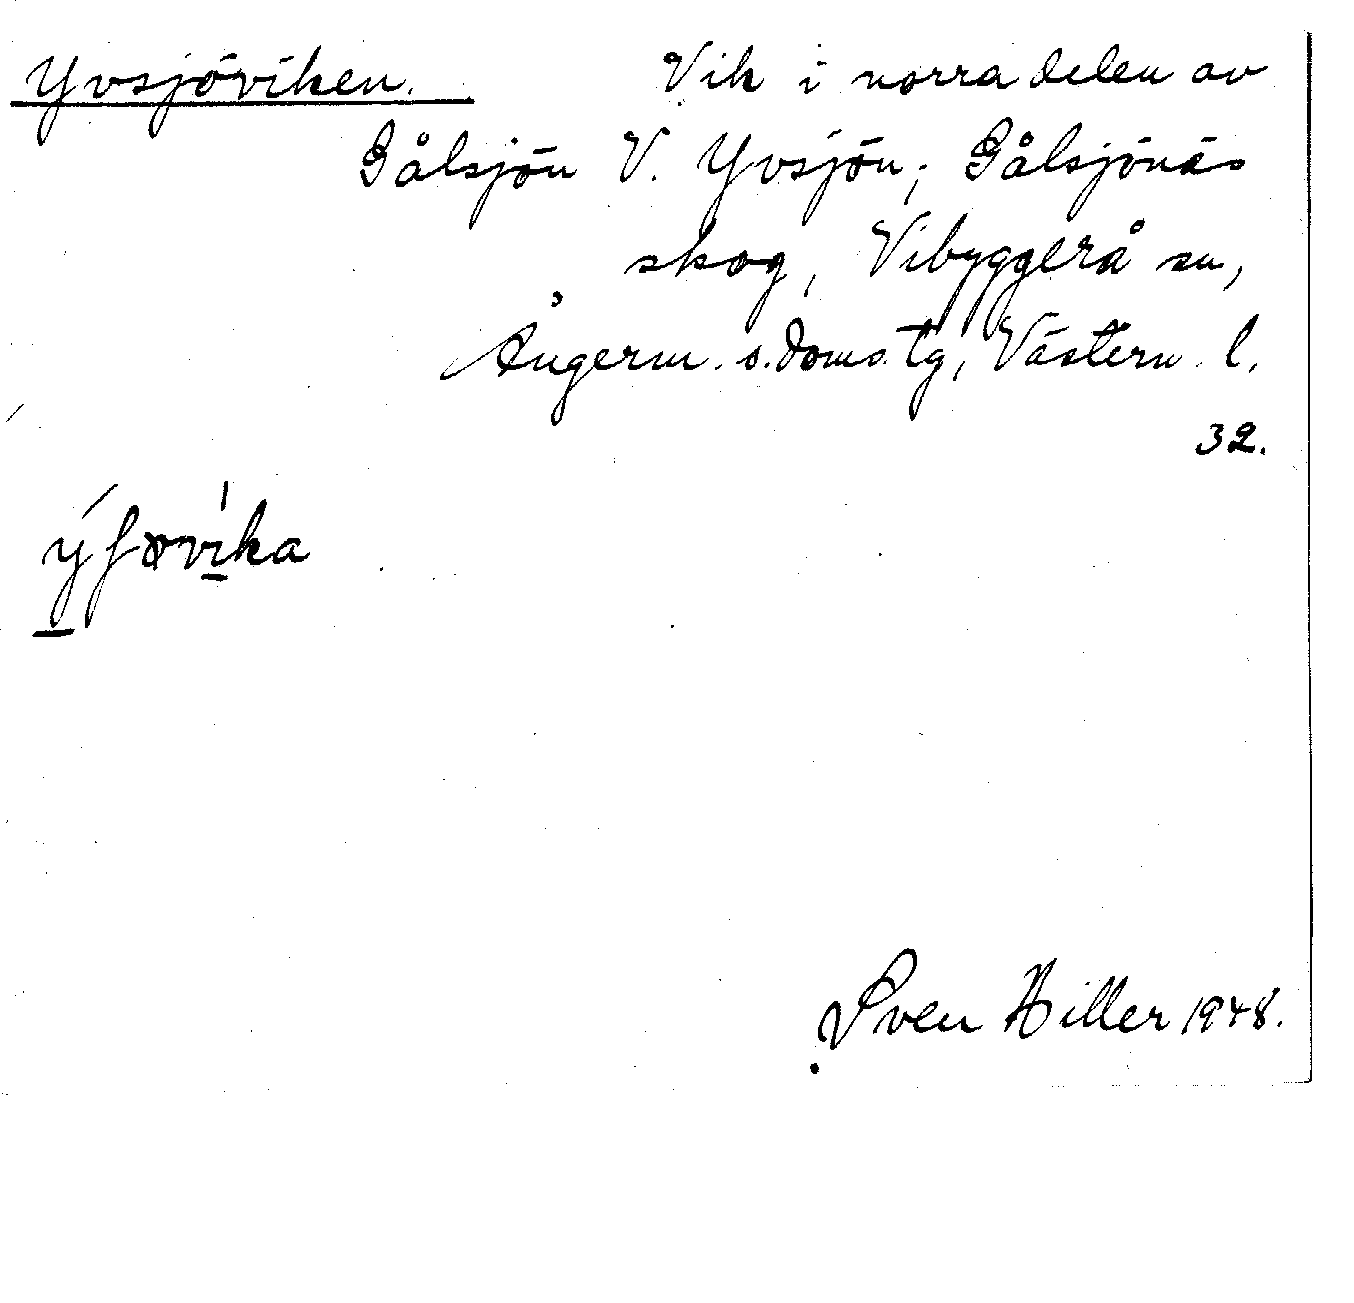 Yvsjöviken. Vik i norra delen av
Gålsjön V. Yvsjön; Gålsjönäs
skog, Vibyggerå sn,
Ångerm. s. doms. tg, Västern. l.
32.
Sven Hiller 1948.